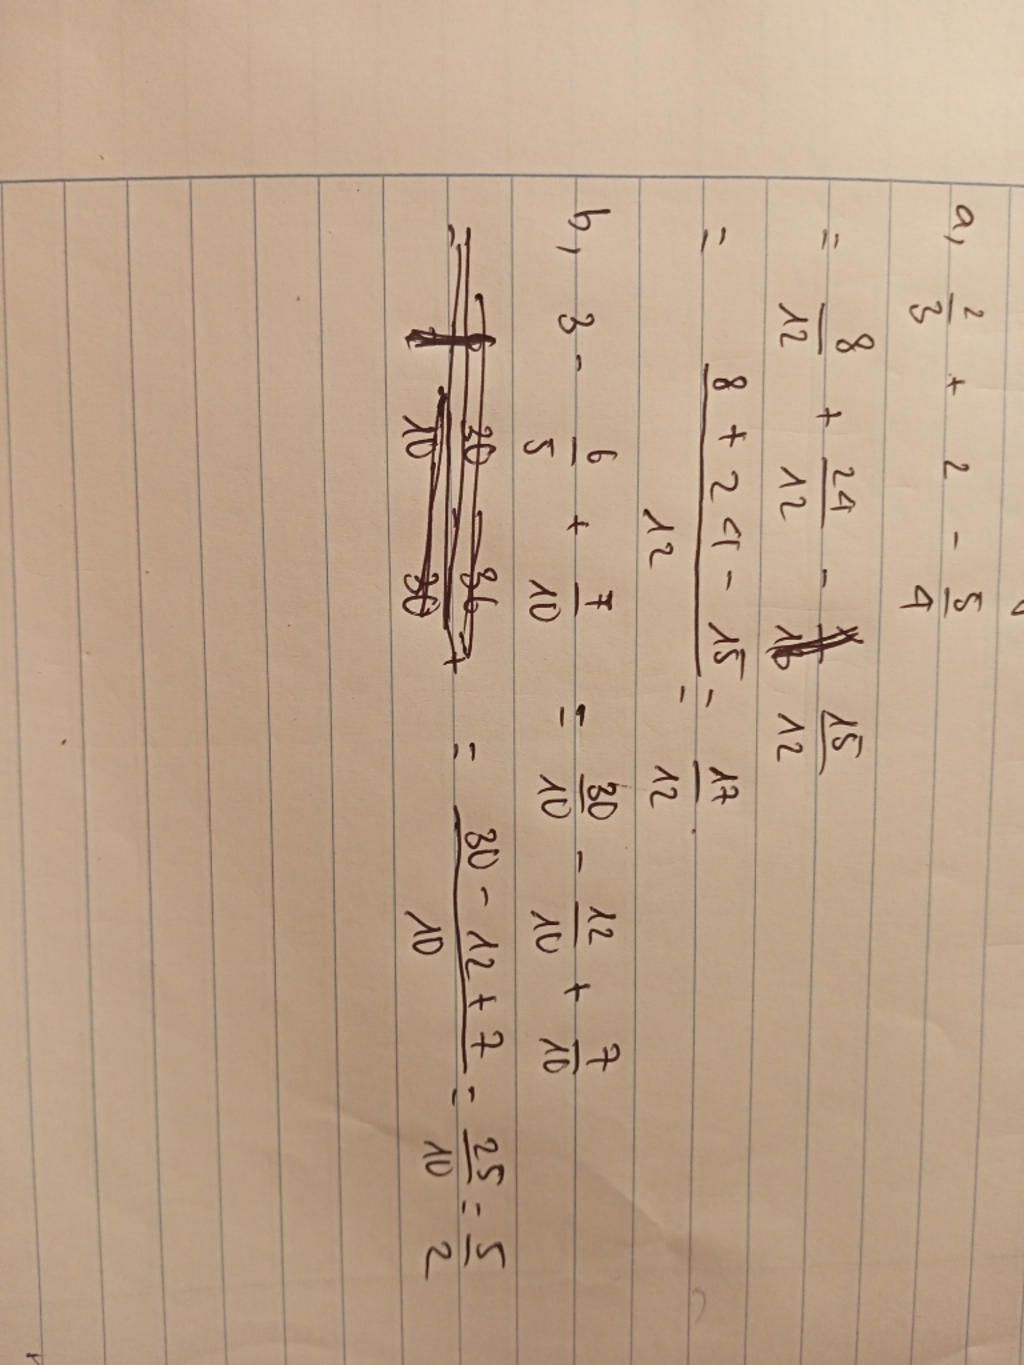 a, 2/3 + 2 - 5/4
= 8/12 + 24/12 - 15/12
= (8 + 24 - 15)/12 = 17/12
b, 3 - 6/5 + 7/10 = 30/10 - 12/10 + 7/10
= (30 - 12 + 7)/10 = 25/10 = 5/2